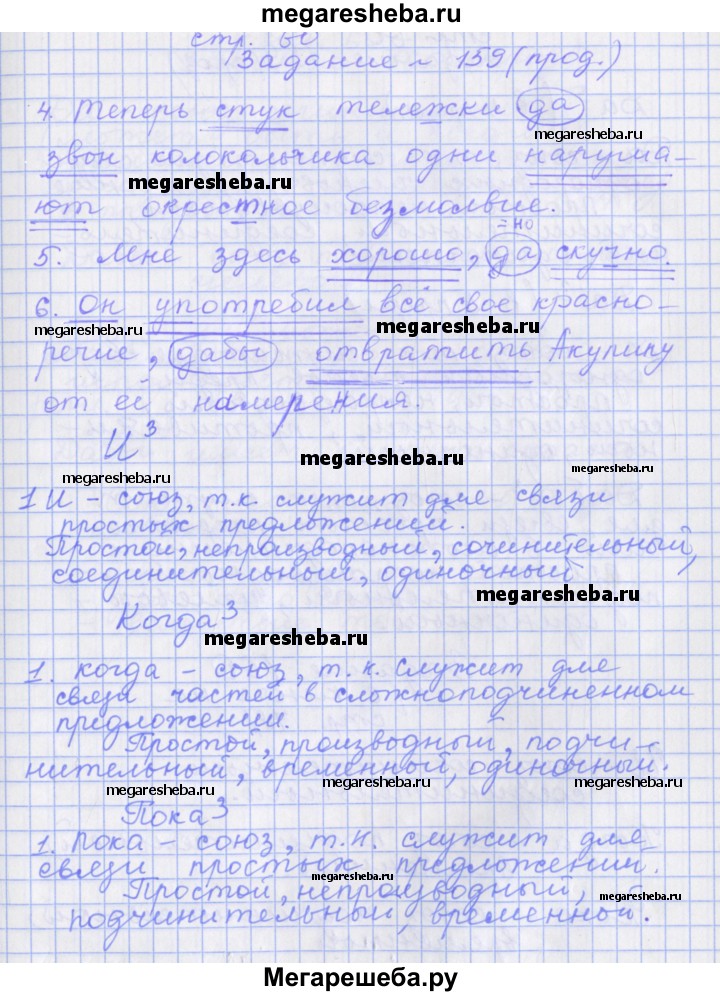 megaresheba.ru
стр. 60
Задание ~ 159 (прод.)
megaresheba.ru
4. Теперь стук тележки да
megaresheba.ru
звон колокольчика одни наруша-
megaresheba.ru
ют окрестное безмолвие.
=но
5. Мне здесь хорошо, да скучно.
6. Он употребил всё свое красно-
megaresheba.ru megaresheba.ru
речие, дабы отвратить Акулину
от её намерения.
И³
megaresheba.ru megaresheba.ru
1 И – союз, т.к. служит для связи
простых предложений.
Простой, непроизводный, сочинительный,
соединительный, одиночный
megaresheba.ru
Когда³
megaresheba.ru
1. Когда – союз, т.к. служит для
связи частей в сложноподчиненном
предложении.
Простой, производный, подчи-
нительный, временный, одиночный.
megaresheba.ru megaresheba.ru
Пока³
1. Пока – союз, т.к. служит для
связи простых предложений.
megaresheba.ru
Простой, непроизводный,
megaresheba.ru
подчинительный, временной.
megaresheba.ru
Мегарешеба.ру